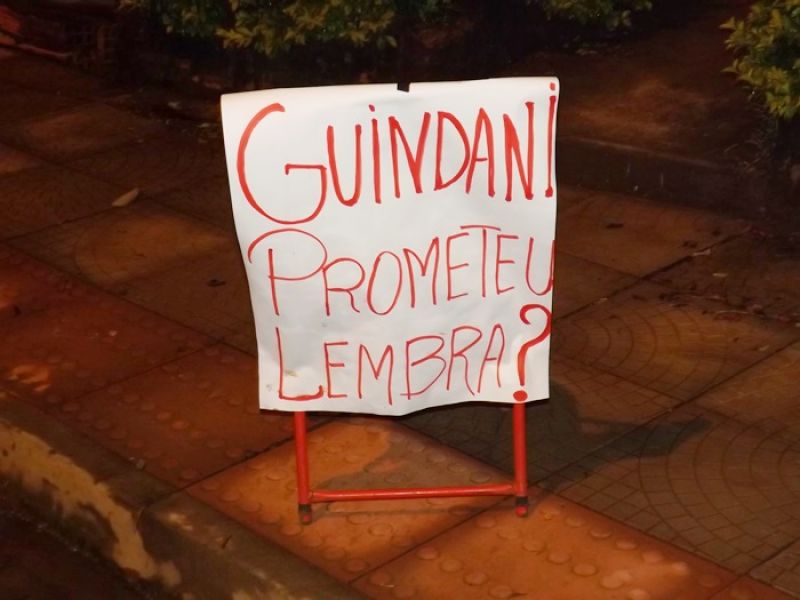 GUINDANI
PROMETEU
LEMBRA?